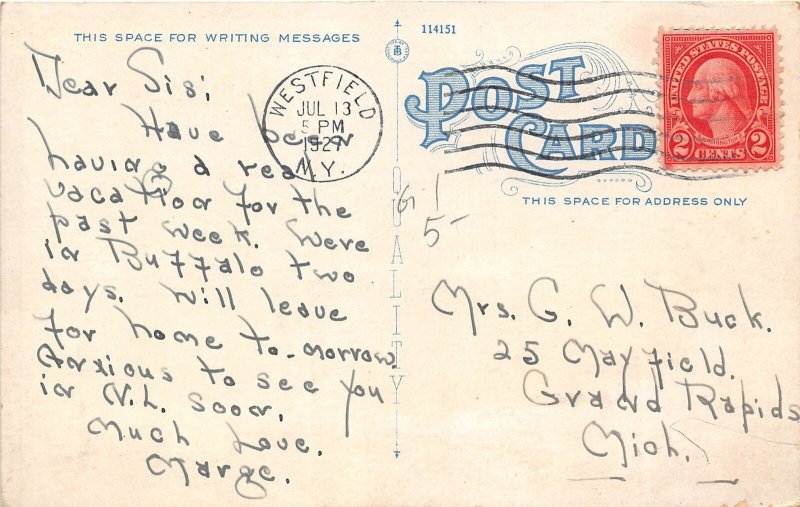 THIS SPACE FOR WRITING MESSAGES
114151
POST CARD
WESTFIELD
JUL 13
5 PM
N.Y.
UNITED STATES POSTAGE
WASHINGTON
2 CENTS 2
THIS SPACE FOR ADDRESS ONLY
QUALITY
Dear Sis;
Have been
having a real
vacation for the
past week. Were
in Buffalo two
days. Will leave
for home to-morrow.
Anxious to see you
in N.L. soon.
Much love.
Marge.
G-1
5-
Mrs. G. W. Buck.
25 Mayfield.
Grand Rapids
Mich.